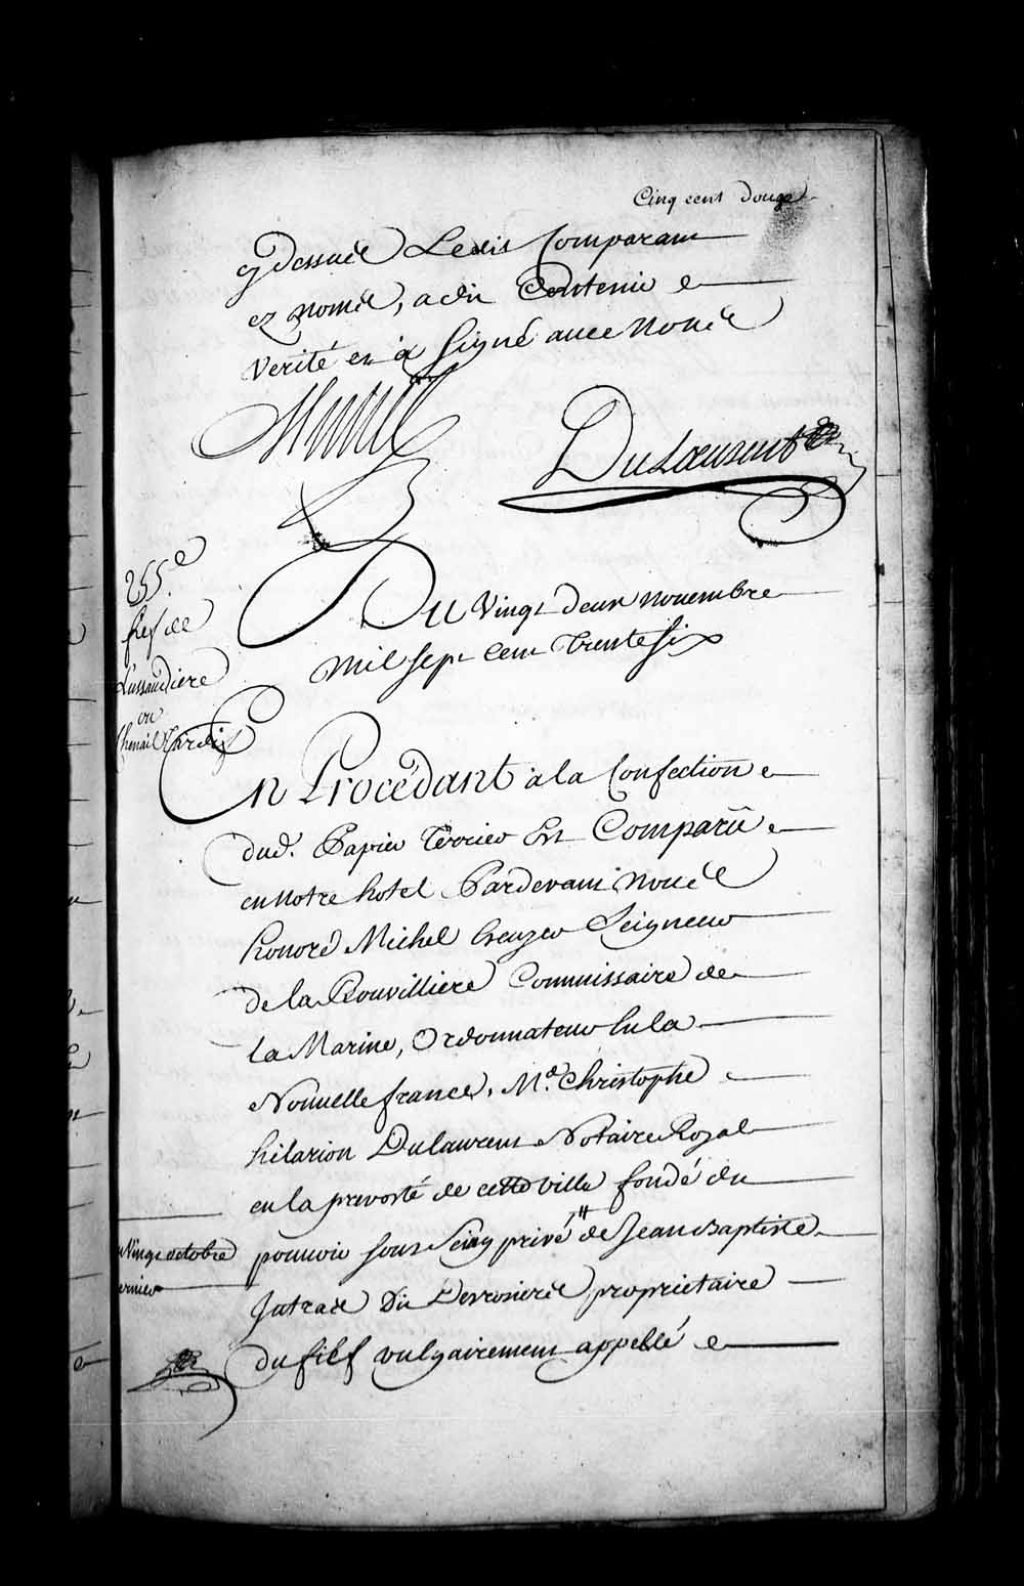 Cinq cent douze
cy dessus Ledit Comparant
ez noms, a dit Contenir
verité et a signé avec nous
Hocquart
DuLaurent
255.e
fief de
Lussaudiere
ou
Chenail Tardif
Du Vingt deux novembre
mil sept cent trente six
En Procédant à la Confection
dud. Papier Terrier Est Comparü
en notre hotel Pardevant nous
honoré Michel Seigneur
de la Rouvilliere Commissaire de
la Marine, Ordonnateur en la
Nouvelle france, M.e Christophe
hilarion Dulaurent Notaire Royal
en la prevosté de cette ville fondé du
pouvoir sous seing privé # de Jean Baptiste
Jutras Dit Desrosiers proprietaire
du fief vulgairement appellé
Vingt octobre
dernier